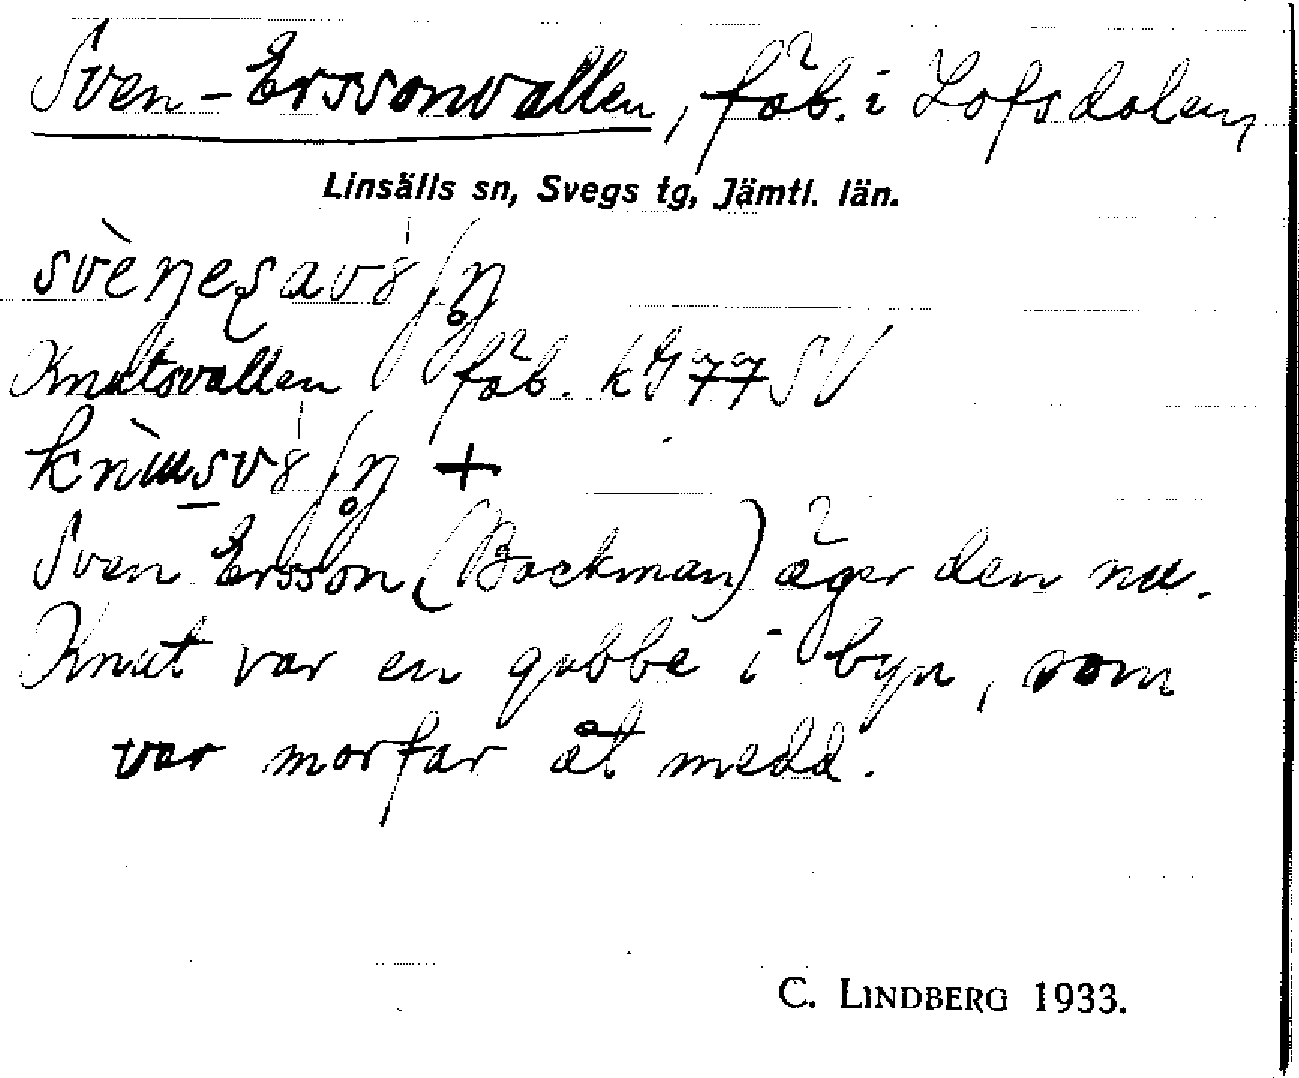 Sven-Erssonvallen, fäb. i Lofsdalen,
Linsälls sn, Svegs tg, Jämtl. län.
Knutsvallen fäb. kG 77 SV
+
Sven Ersson (Backman) äger den nu.
Knut var en gubbe i byn, som
var morfar åt medd.
C. LINDBERG 1933.